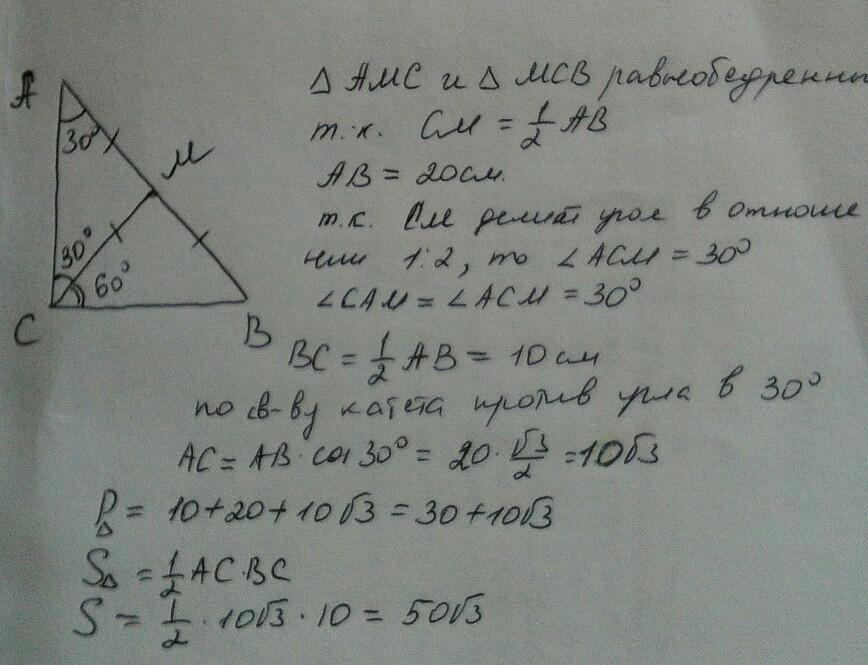 A
30°
M
30°
60°
C
B
Δ AMC и Δ MCB равнобедренны
т.к. CM = 1/2 AB
AB = 20см.
т.к. СМ делит угол в отноше
нии 1:2, то ∠ACM = 30°
∠CAM = ∠ACM = 30°
BC = 1/2 AB = 10 см
по св-ву катета против угла в 30°
AC = AB · cos 30° = 20 · √3/2 = 10√3
P△ = 10+20+10√3 = 30+10√3
S△ = 1/2 AC·BC
S = 1/2 · 10√3 · 10 = 50√3